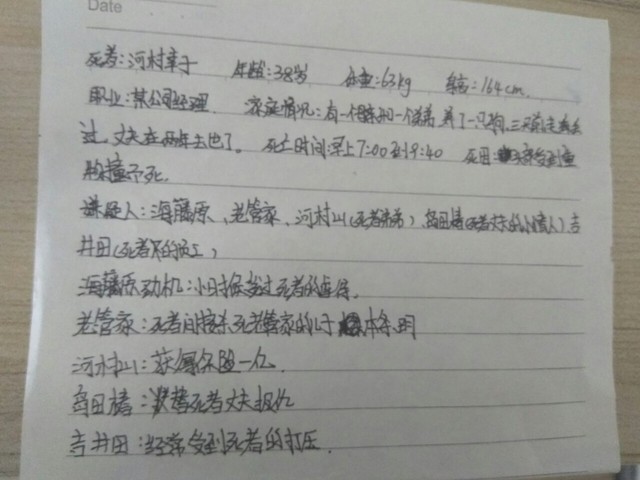 Date
死者:河村幸子 年龄:38岁 体重:63kg 身高:164cm.
职业:某公司经理. 家庭情况:有一个妹和一个弟弟 养了一只狗,三天前走丢
过,丈夫在两年去世了。 死亡时间:早上7:00到9:40 死因:受到重
物撞
嫌疑人:海藤原、老管家、河村山(死者弟弟)、岛田椿(死者丈夫的情人)吉
井田(死者的员工)
海藤原动机:小时候受过死者的虐待.
老管家:死者间接杀死老管家的儿子
河村山:获得保险一亿.
岛田椿:替死者丈夫报仇
吉井田:经常受到死者的打压.